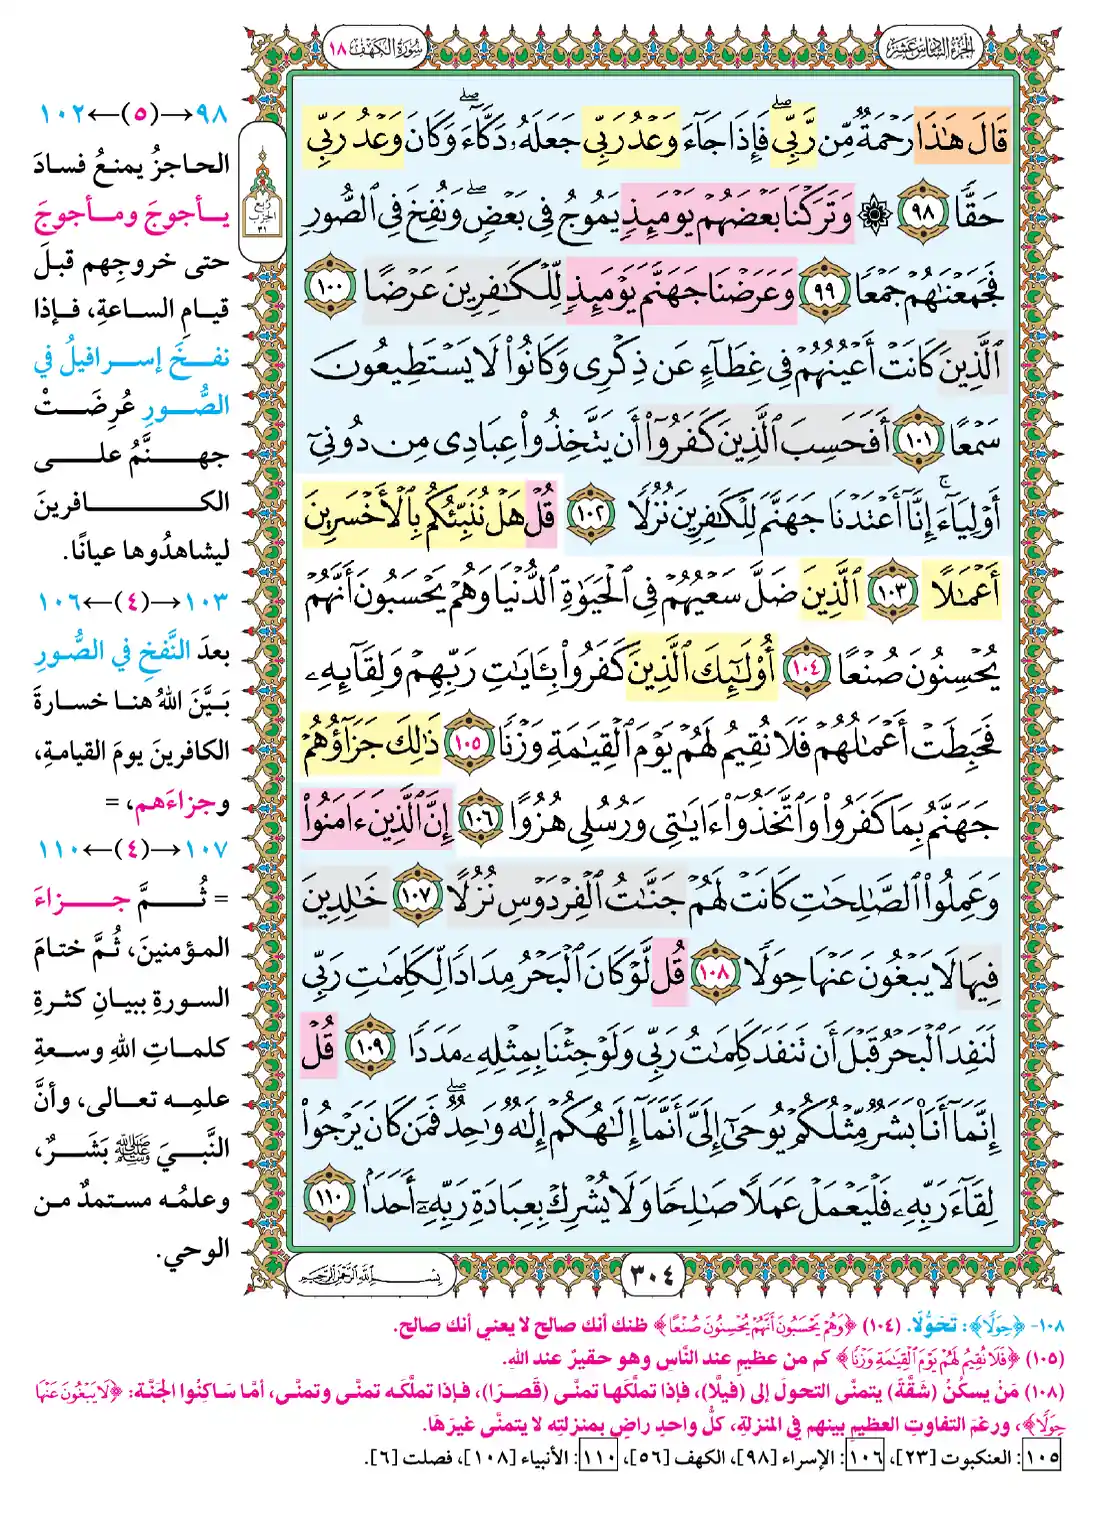 الجزء السادس عشر
سورة الكهف ١٨
قَالَ هَٰذَا رَحْمَةٌ مِّن رَّبِّي ۖ فَإِذَا جَآءَ وَعْدُ رَبِّي جَعَلَهُۥ دَكَّآءَ ۖ وَكَانَ وَعْدُ رَبِّي
حَقًّا ٩٨ ۞ وَتَرَكْنَا بَعْضَهُمْ يَوْمَئِذٍ يَمُوجُ فِي بَعْضٍ ۖ وَنُفِخَ فِي ٱلصُّورِ
فَجَمَعْنَٰهُمْ جَمْعًا ٩٩ وَعَرَضْنَا جَهَنَّمَ يَوْمَئِذٍ لِّلْكَٰفِرِينَ عَرْضًا ١٠٠
ٱلَّذِينَ كَانَتْ أَعْيُنُهُمْ فِي غِطَآءٍ عَن ذِكْرِي وَكَانُوا۟ لَا يَسْتَطِيعُونَ
سَمْعًا ١٠١ أَفَحَسِبَ ٱلَّذِينَ كَفَرُوٓا۟ أَن يَتَّخِذُوا۟ عِبَادِي مِن دُونِيٓ
أَوْلِيَآءَ ۚ إِنَّآ أَعْتَدْنَا جَهَنَّمَ لِلْكَٰفِرِينَ نُزُلًا ١٠٢ قُلْ هَلْ نُنَبِّئُكُم بِٱلْأَخْسَرِينَ
أَعْمَٰلًا ١٠٣ ٱلَّذِينَ ضَلَّ سَعْيُهُمْ فِي ٱلْحَيَوٰةِ ٱلدُّنْيَا وَهُمْ يَحْسَبُونَ أَنَّهُمْ
يُحْسِنُونَ صُنْعًا ١٠٤ أُو۟لَٰٓئِكَ ٱلَّذِينَ كَفَرُوا۟ بِـَٔايَٰتِ رَبِّهِمْ وَلِقَآئِهِۦ
فَحَبِطَتْ أَعْمَٰلُهُمْ فَلَا نُقِيمُ لَهُمْ يَوْمَ ٱلْقِيَٰمَةِ وَزْنًا ١٠٥ ذَٰلِكَ جَزَآؤُهُمْ
جَهَنَّمُ بِمَا كَفَرُوا۟ وَٱتَّخَذُوٓا۟ ءَايَٰتِي وَرُسُلِي هُزُوًا ١٠٦ إِنَّ ٱلَّذِينَ ءَامَنُوا۟
وَعَمِلُوا۟ ٱلصَّٰلِحَٰتِ كَانَتْ لَهُمْ جَنَّٰتُ ٱلْفِرْدَوْسِ نُزُلًا ١٠٧ خَٰلِدِينَ
فِيهَا لَا يَبْغُونَ عَنْهَا حِوَلًا ١٠٨ قُل لَّوْ كَانَ ٱلْبَحْرُ مِدَادًا لِّكَلِمَٰتِ رَبِّي
لَنَفِدَ ٱلْبَحْرُ قَبْلَ أَن تَنفَدَ كَلِمَٰتُ رَبِّي وَلَوْ جِئْنَا بِمِثْلِهِۦ مَدَدًا ١٠٩ قُلْ
إِنَّمَآ أَنَا۠ بَشَرٌ مِّثْلُكُمْ يُوحَىٰٓ إِلَيَّ أَنَّمَآ إِلَٰهُكُمْ إِلَٰهٌ وَٰحِدٌ ۖ فَمَن كَانَ يَرْجُوا۟
لِقَآءَ رَبِّهِۦ فَلْيَعْمَلْ عَمَلًا صَٰلِحًا وَلَا يُشْرِكْ بِعِبَادَةِ رَبِّهِۦٓ أَحَدًۢا ١١٠
ربع
الحزب
٣١
٩٨→(٥)←١٠٢
الحاجزُ يمنعُ فسادَ
يـأجوجَ ومـأجوجَ
حتى خروجِهم قبلَ
قيامِ الساعةِ، فإذا
نفخَ إسرافيلُ في
الصُّورِ عُرِضَتْ
جهنَّمُ على
الكافرينَ
ليشاهدُوها عيانًا.
١٠٣→(٤)←١٠٦
بعدَ النَّفخِ في الصُّورِ
بَيَّنَ اللهُ هنا خسارةَ
الكافرينَ يومَ القيامةِ،
وجزاءَهم، =
١٠٧→(٤)←١١٠
= ثُمَّ جزاءَ
المؤمنينَ، ثُمَّ ختامَ
السورةِ ببيانِ كثرةِ
كلماتِ اللهِ وسعةِ
علمِه تعالى، وأنَّ
النَّبيَ ﷺ بَشَرٌ،
وعلمُه مستمدٌ من
الوحي.
٣٠٤
بسم الله الرحمن الرحيم
١٠٨- ﴿حِوَلًا﴾: تَحَوُّلًا. (١٠٤) ﴿وَهُمْ يَحْسَبُونَ أَنَّهُمْ يُحْسِنُونَ صُنْعًا﴾ ظنك أنك صالح لا يعني أنك صالح.
(١٠٥) ﴿فَلَا نُقِيمُ لَهُمْ يَوْمَ ٱلْقِيَٰمَةِ وَزْنًا﴾ كم من عظيمٍ عند النَّاس وهو حقيرٌ عند اللهِ.
(١٠٨) مَنْ يسكُنُ (شقَّةً) يتمنَّى التحولَ إلى (فيلَّا)، فإذا تملَّكَها تمنَّى (قصرًا)، فإذا تملَّكَه تمنَّى وتمنَّى، أمَّا سَاكِنُوا الجَنَّة: ﴿لَا يَبْغُونَ عَنْهَا
حِوَلًا﴾، ورغمَ التفاوتِ العظيمِ بينهم في المنزلةِ، كلُّ واحدٍ راضٍ بمنزلتِه لا يتمنَّى غيرَهَا.
١٠٥: العنكبوت [٢٣]، ١٠٦: الإسراء [٩٨]، الكهف [٥٦]، ١١٠: الأنبياء [١٠٨]، فصلت [٦].